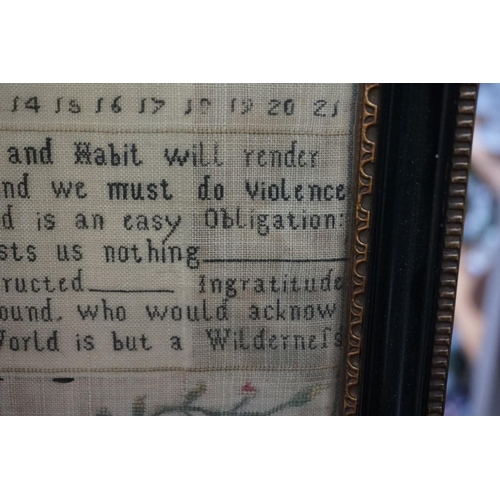 14 15 16 17 18 19 20 21
and Habit will render
nd we must do Violence
d is an easy Obligation:
sts us nothing
ructed Ingratitude
ound. who would acknow
World is but a Wilderneſs